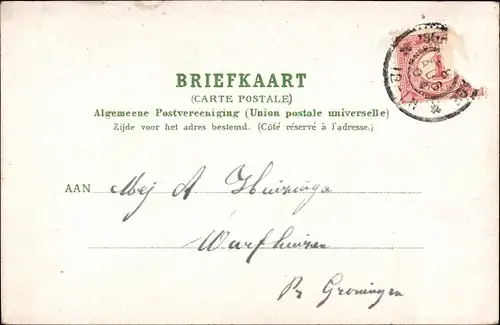 BRIEFKAART
(CARTE POSTALE)
Algemeene Postvereeniging (Union postale universelle)
Zijde voor het adres bestemd. (Côté réservé à l'adresse.)
AAN Mej A Huizinga
Warfhuizen
Pr Groningen